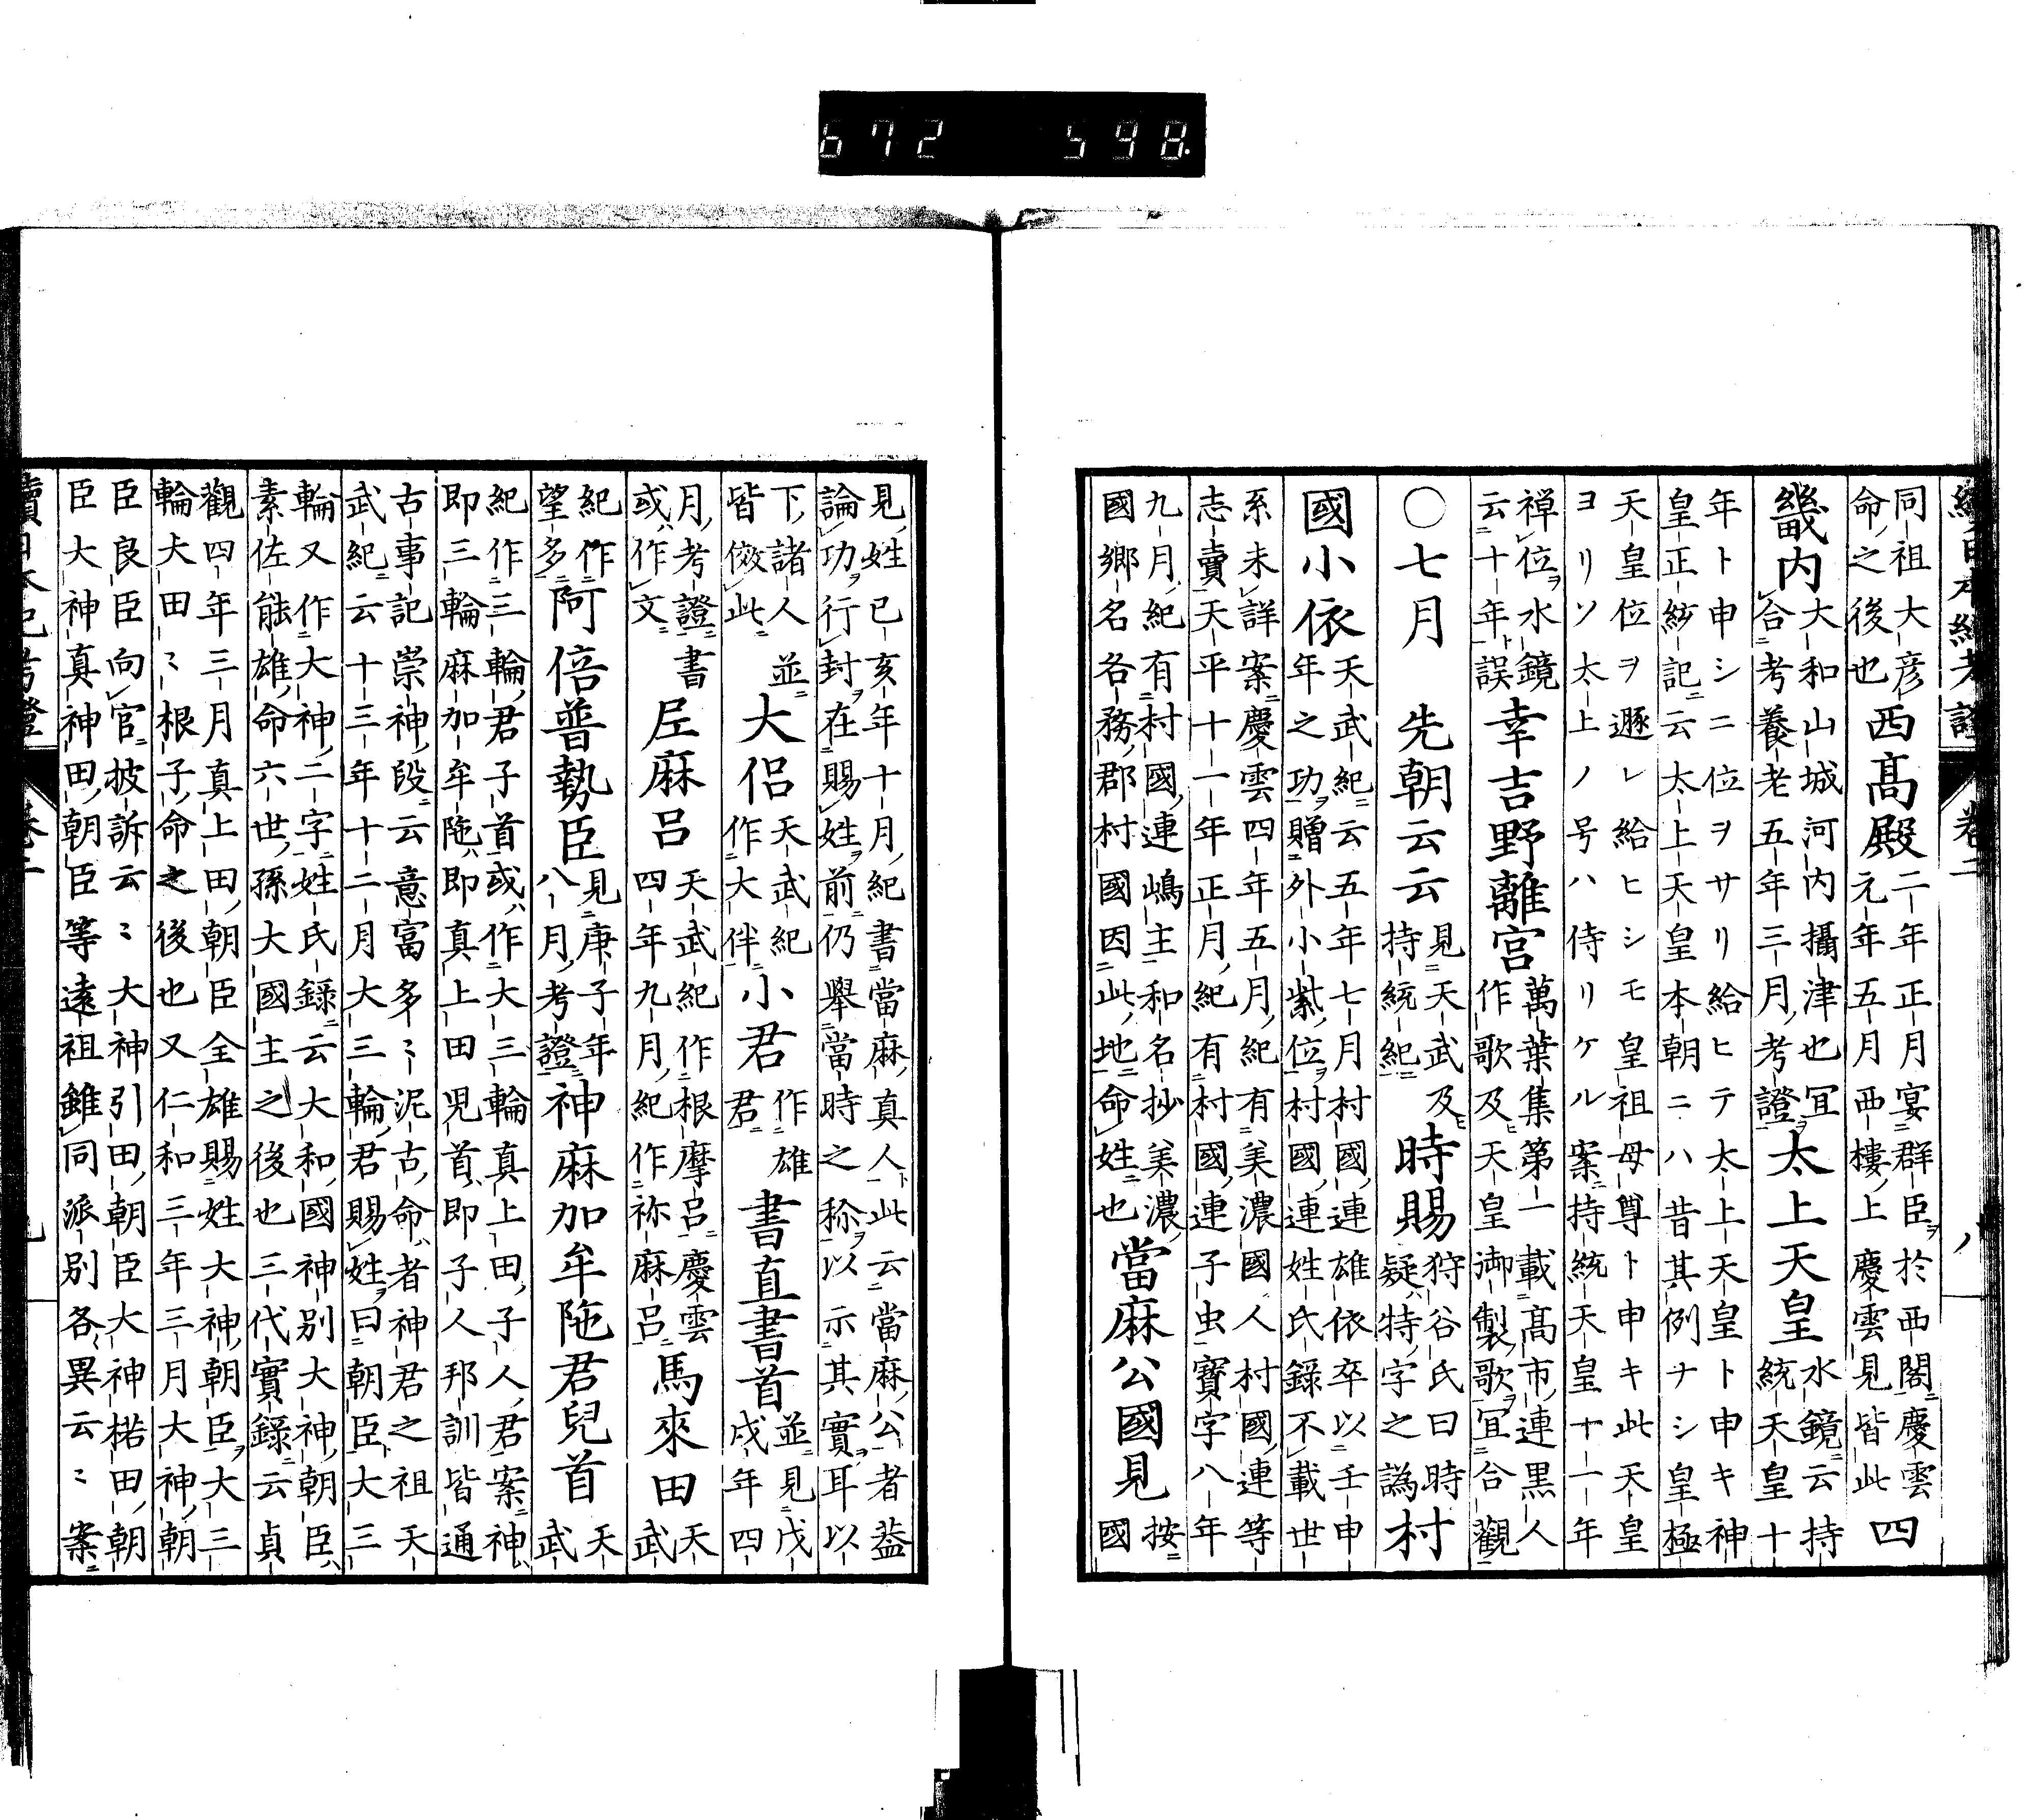 續日本紀考證 卷二 八
同祖大彦命之後也西髙殿二年正月宴群臣於西閣慶雲元年五月西樓上慶雲見皆此四
畿内大和山城河内攝津也宜合考養老五年三月考證太上天皇水鏡云持統天皇十
年ト申シニ位ヲサリ給ヒテ太上天皇ト申キ神
皇正統記云太上天皇本朝ニハ昔其例ナシ皇極
天皇位ヲ遜レ給ヒシモ皇祖母尊ト申キ此天皇
ヨリソ太上ノ号ハ侍リケル案持統天皇十一年
禅位水鏡云十年誤幸吉野離宮萬葉集第一載髙市連黒人作歌及天皇御製歌宜合觀
〇七月 先朝云云見天武及持統紀時賜狩谷氏曰時疑特字之譌村
國小依天武紀云五年七月村國連雄依卒以壬申年之功贈外小紫位村國連姓氏録不載世
系未詳案慶雲四年五月紀有美濃國人村國連等
志賣天平十一年正月紀有村國連子虫寳字八年
九月紀有村國連嶋主和名抄美濃國鄉名各務郡村國因此地命姓也當麻公國見按國
見姓已亥年十月紀書當麻真人此云當麻公者蓋
論功行封在賜姓前仍舉當時之稱以示其實耳以
下諸人並皆倣此大侶天武紀作大伴小君作雄君書直書首並見戊戌年四
月考證書或作文㞐麻呂天武紀作根摩呂慶雲四年九月紀作祢麻呂馬來田天武
紀作望多阿倍普勢臣見庚子年八月考證神麻加牟陁君兒首天武
紀作三輪君子首或作大三輪真上田子人君案神
即三輪麻加牟陁即真上田児首即子人邦訓皆通
古事記崇神段云意富多〻泥古命者神君之祖天
武紀云十三年十二月大三輪君賜姓曰朝臣大三
輪又作大神二字姓氏録云大和國神別大神朝臣
素佐能雄命六世孫大國主之後也三代實録云貞
觀四年三月真上田朝臣全雄賜姓大神朝臣大三
輪大田〻根子命之後也又仁和三年三月大神朝
臣良臣向官披訴云〻大神引田朝臣大神楉田朝
臣大神真神田朝臣等遠祖雖同派別各異云〻案
續日本紀考證 卷二 九